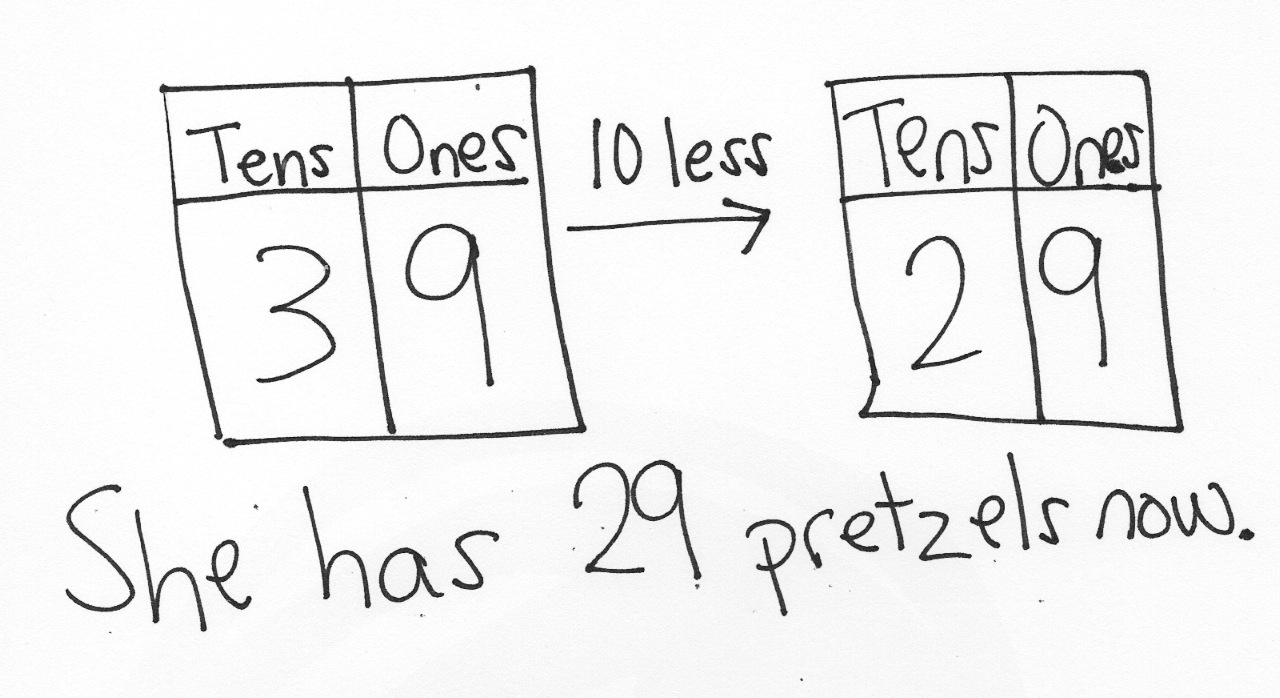 Tens Ones 10 less Tens Ones
3 9 2 9
She has 29 pretzels now.